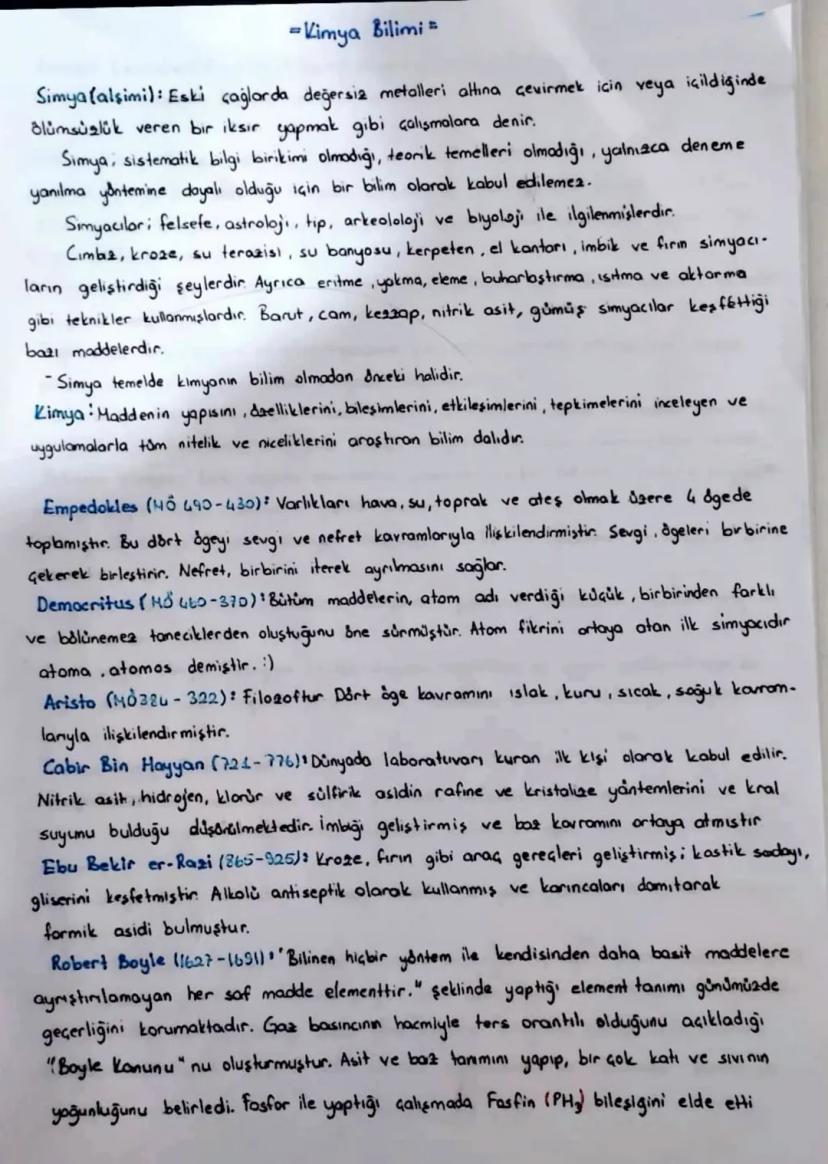 =Kimya Bilimi=
Simya(alşimi): Eski çağlarda değersiz metalleri altına çevirmek için veya içildiğinde
ölümsüzlük veren bir iksir yapmak gibi çalışmalara denir.
Simya; sistematik bilgi birikimi olmadığı, teorik temelleri olmadığı, yalnızca deneme
yanılma yöntemine dayalı olduğu için bir bilim olarak kabul edilemez.
Simyacılar; felsefe, astroloji, tıp, arkeololoji ve biyoloji ile ilgilenmişlerdir.
Cımbız, kroze, su terazisi, su banyosu, kerpeten, el kantarı, imbik ve fırın simyacı-
ların geliştirdiği şeylerdir. Ayrıca eritme, yakma, eleme, buharlaştırma, ısıtma ve aktarma
gibi teknikler kullanmışlardır. Barut, cam, kezzap, nitrik asit, gümüş simyacılar keşfettiği
bazı maddelerdir.
- Simya temelde kimyanın bilim olmadan önceki halidir.
Kimya: Maddenin yapısını, özelliklerini, bileşimlerini, etkileşimlerini, tepkimelerini inceleyen ve
uygulamalarla tüm nitelik ve niceliklerini araştıran bilim dalıdır.
Empedokles (MÖ 490-430): Varlıkları hava, su, toprak ve ateş olmak üzere 4 ögede
toplamıştır. Bu dört ögeyi sevgi ve nefret kavramlarıyla ilişkilendirmiştir. Sevgi, ögeleri birbirine
çekerek birleştirir. Nefret, birbirini iterek ayrılmasını sağlar.
Democritus (MÖ 460-370): Bütüm maddelerin, atom adı verdiği küçük, birbirinden farklı
ve bölünemez taneciklerden oluştuğunu öne sürmüştür. Atom fikrini ortaya atan ilk simyacıdır
atoma, atomos demiştir. :)
Aristo (MÖ384 - 322): Filozoftur Dört öge kavramını ıslak, kuru, sıcak, soğuk kavram-
larıyla ilişkilendirmiştir.
Cabir Bin Hayyan (721-776): Dünyada laboratuvarı kuran ilk kişi olarak kabul edilir.
Nitrik asit, hidrojen, klorür ve sülfirik asidin rafine ve kristalize yöntemlerini ve kral
suyunu bulduğu düşünülmektedir. İmbiği geliştirmiş ve baz kavramını ortaya atmıştır
Ebu Bekir er-Razi (865-925): Kroze, fırın gibi araç gereçleri geliştirmiş; kostik sodayı,
gliserini keşfetmiştir. Alkolü antiseptik olarak kullanmış ve karıncaları damıtarak
formik asidi bulmuştur.
Robert Boyle (1627-1691): "Bilinen hiçbir yöntem ile kendisinden daha basit maddelere
ayrıştırılamayan her saf madde elementtir." şeklinde yaptığı element tanımı günümüzde
geçerliğini korumaktadır. Gaz basıncının hacmiyle ters orantılı olduğunu açıkladığı
"Boyle Kanunu" nu oluşturmuştur. Asit ve baz tanımını yapıp, bir çok katı ve sıvının
yoğunluğunu belirledi. Fosfor ile yaptığı çalışmada Fosfin (PH₃) bileşiğini elde etti